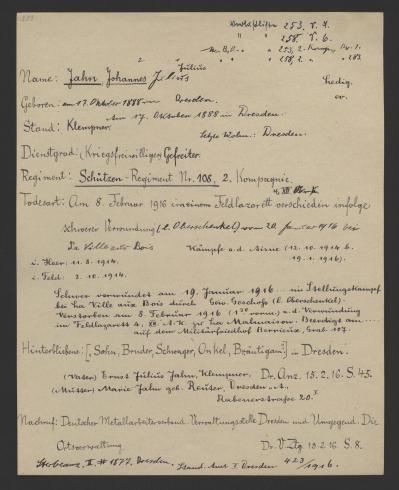 Verlustliste 253, S. 7.
" 258, S. 6.
" " 253, 2. Komp., Nr. 1.
" " 258, 2. " 283
2 Julius
Name: Jahn, Johannes Julius ledig.
ev.
Geboren: am 17. Oktober 1888 in Dresden.
Am 17. Oktober 1888 in Dresden.
Stand: Klempner. Letzte Wohn.: Dresden.
Dienstgrad: (Kriegsfreiwilliger) Gefreiter.
Regiment: Schützen-Regiment Nr. 108, 2. Kompagnie.
Todesart: Am 8. Februar 1916 in einem Feldlazarett verschieden infolge
schwerer Verwundung (l. Oberschenkel) vom 20. Januar 1916 bei
La Ville aux Bois Kämpfe a. d. Aisne (12. 10. 1914 b.
z. Heer: 11. 8. 1914. 19. 1. 1916).
i. Feld: 2. 10. 1914.
Schwer verwundet am 19. Januar 1916 im Stellungskampf
bei La Ville aux Bois durch Gew. Geschoß (l. Oberschenkel).
Verstorben am 8. Februar 1916 a. d. Verwundung
im Feldlazarett 4, XII. A.K. zu La Malmaison. Beerdigt am ....
auf dem Militärfriedhof Berrieux, Grab 107.
Hinterbliebene: [, Sohn, Bruder, Schwager, Onkel, Bräutigam] in Dresden.
(Vater) Ernst Julius Jahn, Klempner. Dr. Anz. 15. 2. 16. S. 45.
(Mutter) Marie Jahn geb. Reuser, Dresden-A.,
Rabenerstraße 20 I
Nachruf: Deutscher Metallarbeiterverband Verwaltungsstelle Dresden und Umgegend. Die
Ortsverwaltung Dr. V. Ztg. 15. 2. 16. S. 8.
Sterbeurk. II. # 1877, Dresden. Stand. Amt I Dresden 423/1916.